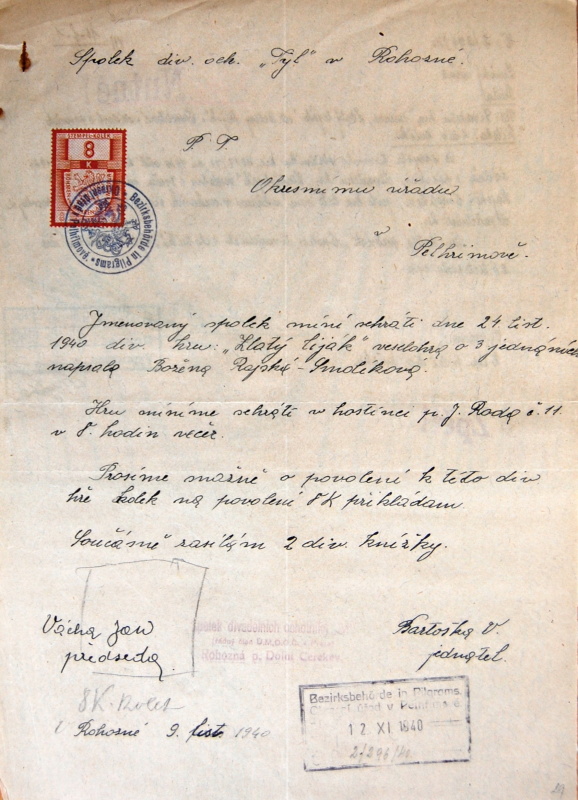 Spolek div. och. „Tyl" v Rohozné.
STEMPEL-KOLEK
8
K
P. T
Okresnímu úřadu
v Pelhřimově.
Bezirksbehörde in Pilgrams
Jmenovaný spolek míní sehráti dne 24. list.
1940 div. hru: „Zlatý liják" veselohra o 3 jednáních
napsala Božena Rajská-Smolíková.
Hru míníme sehráti v hostinci p. J. Rada č. 11.
v 8. hodin večer.
Prosíme možně o povolení k této div
hře kolek na povolení 8K přikládám.
Současně zasílám 2 div. knížky.
Vácha Jan
předseda.
Spolek divadelních ochotníků
Rohozná p. Dolní Cerekev
Bartoška V.
jednatel.
8K. kolek
Rohozné 9. list. 1940
Bezirksbehörde in Pilgrams
12 XI 1940